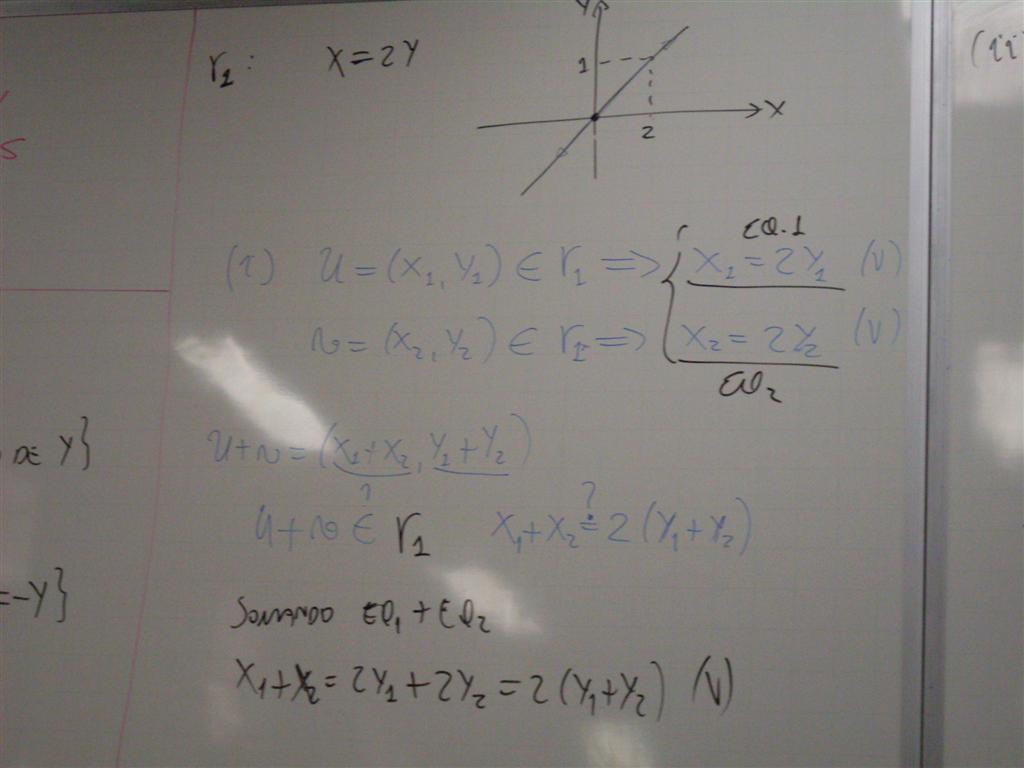 r₁: X = 2Y
Y
1
X
2
EQ.1
(i) u = (X₁, Y₁) ∈ r₁ ⟹ { X₁ = 2Y₁ (V)
v = (X₂, Y₂) ∈ r₁ ⟹ X₂ = 2Y₂ (V)
EQ₂
u+v = (X₁+X₂, Y₁+Y₂)
?
u+v ∈ r₁ X₁+X₂ ≟ 2(Y₁+Y₂)
SOMANDO EQ₁ + EQ₂
X₁+X₂ = 2Y₁ + 2Y₂ = 2(Y₁+Y₂) (V)
S
DE Y}
=-Y}
(ii